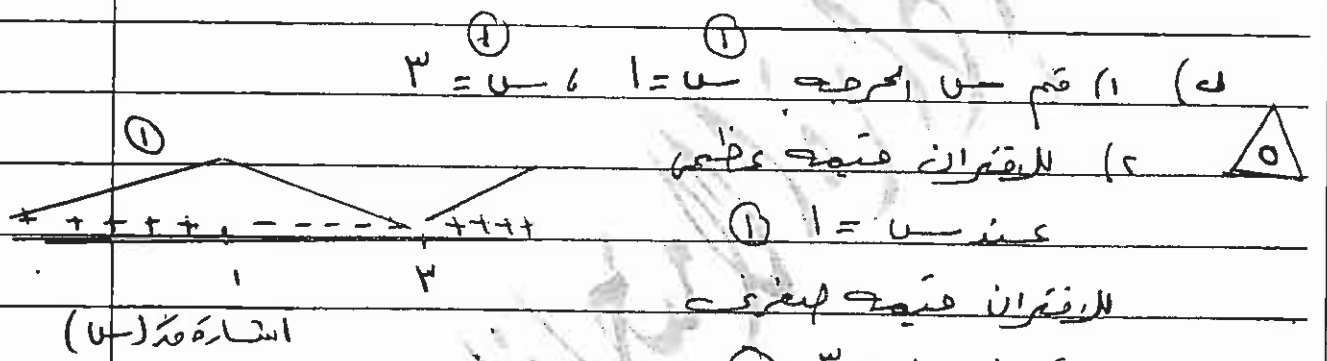 ① ①
ب) ١) قيم س الحرجه س = ١ ، س = ٣
٥ ٢) للاقتران قيمه عظمى
①
عند س = ١ ①
+ + + + + - - - - - ++++
١ ٣
للاقتران قيمه صغرى
اشارة قَ(س)
٣ ①